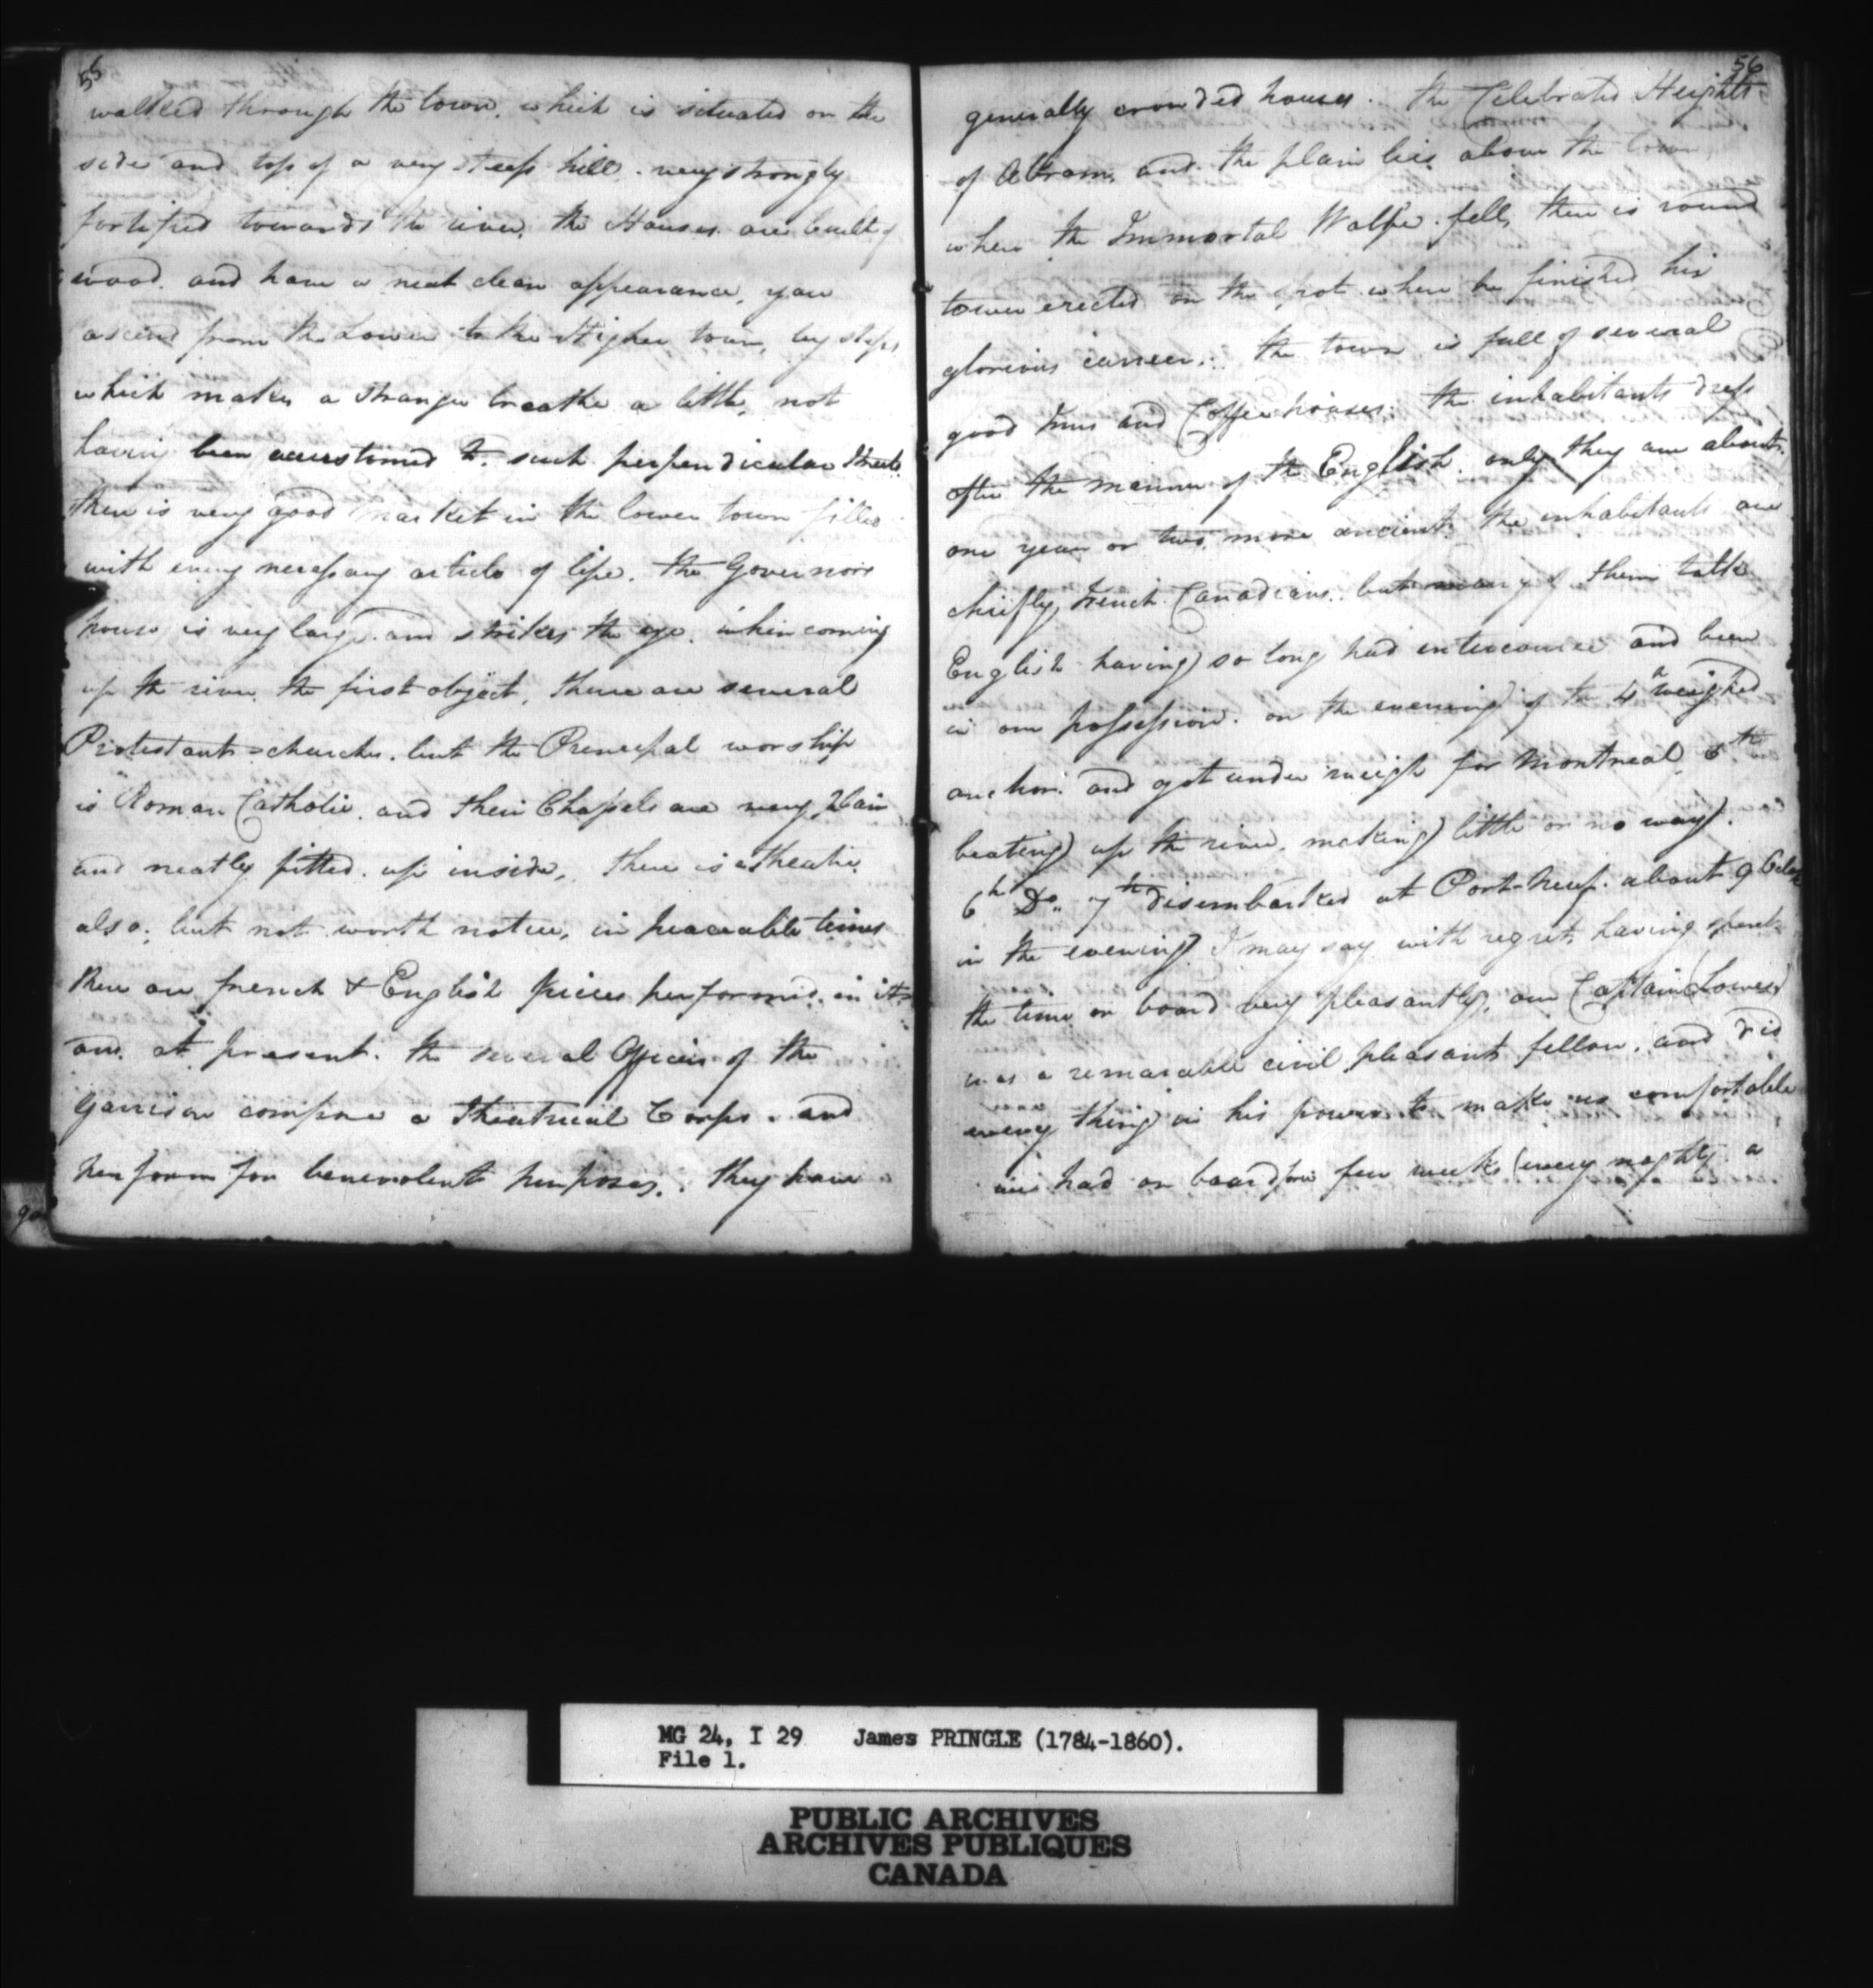 55
walked through the town, which is situated on the
side and top of a very steep hill. very strongly
fortified towards the river, the Houses are built of
wood. and have a neat clean appearance, you
ascend from the Lower to the Higher town, by steps
which makes a stranger breathe a little, not
having been accustomed to such perpendicular streets.
there is very good market in the lower town filled
with every necessary article of life. the Governors
house is very large and strikes the eye. when coming
up the river the first object, there are several
Protestant churches. but the Principal worship
is Roman Catholic. and their Chapels are very plain
and neatly fitted up inside, there is a theatre
also; but not worth notice, in peaceable times
there are french & English pieces performed in it
and at present. the several Officers of the
Garrison compose a Theatrical Corps. and
perform for benevolent purposes. they have
56
generally crowded houses. the Celebrated Heights
of Abram, and the plain lies above the town
where the Immortal Wolfe fell, there is round
tower erected on the spot where he finished his
glorious career. the town is full of several
good Inns and Coffee houses. the inhabitants dress
after the manner of the English. only they are about
one year or two more ancient. the inhabitants are
chiefly French Canadians. but many of them talk
English having so long had intercourse and been
in our possession. on the evening of the 4th weighed
anchor. and got under weigh for Montreal, 5th
beating up the river. making little or no way.
6th Do. 7th disembarked at Port-Neuf. about 9 Oclock
in the evening I may say with regret, having spent
the time on board very pleasantly, our Captain (Lowes)
was a remarable civil pleasant fellow. and did
every thing in his power to make us comfortable
we had on board for few weeks (every night) a
MG 24, I 29 James PRINGLE (1784-1860).
File 1.
PUBLIC ARCHIVES
ARCHIVES PUBLIQUES
CANADA